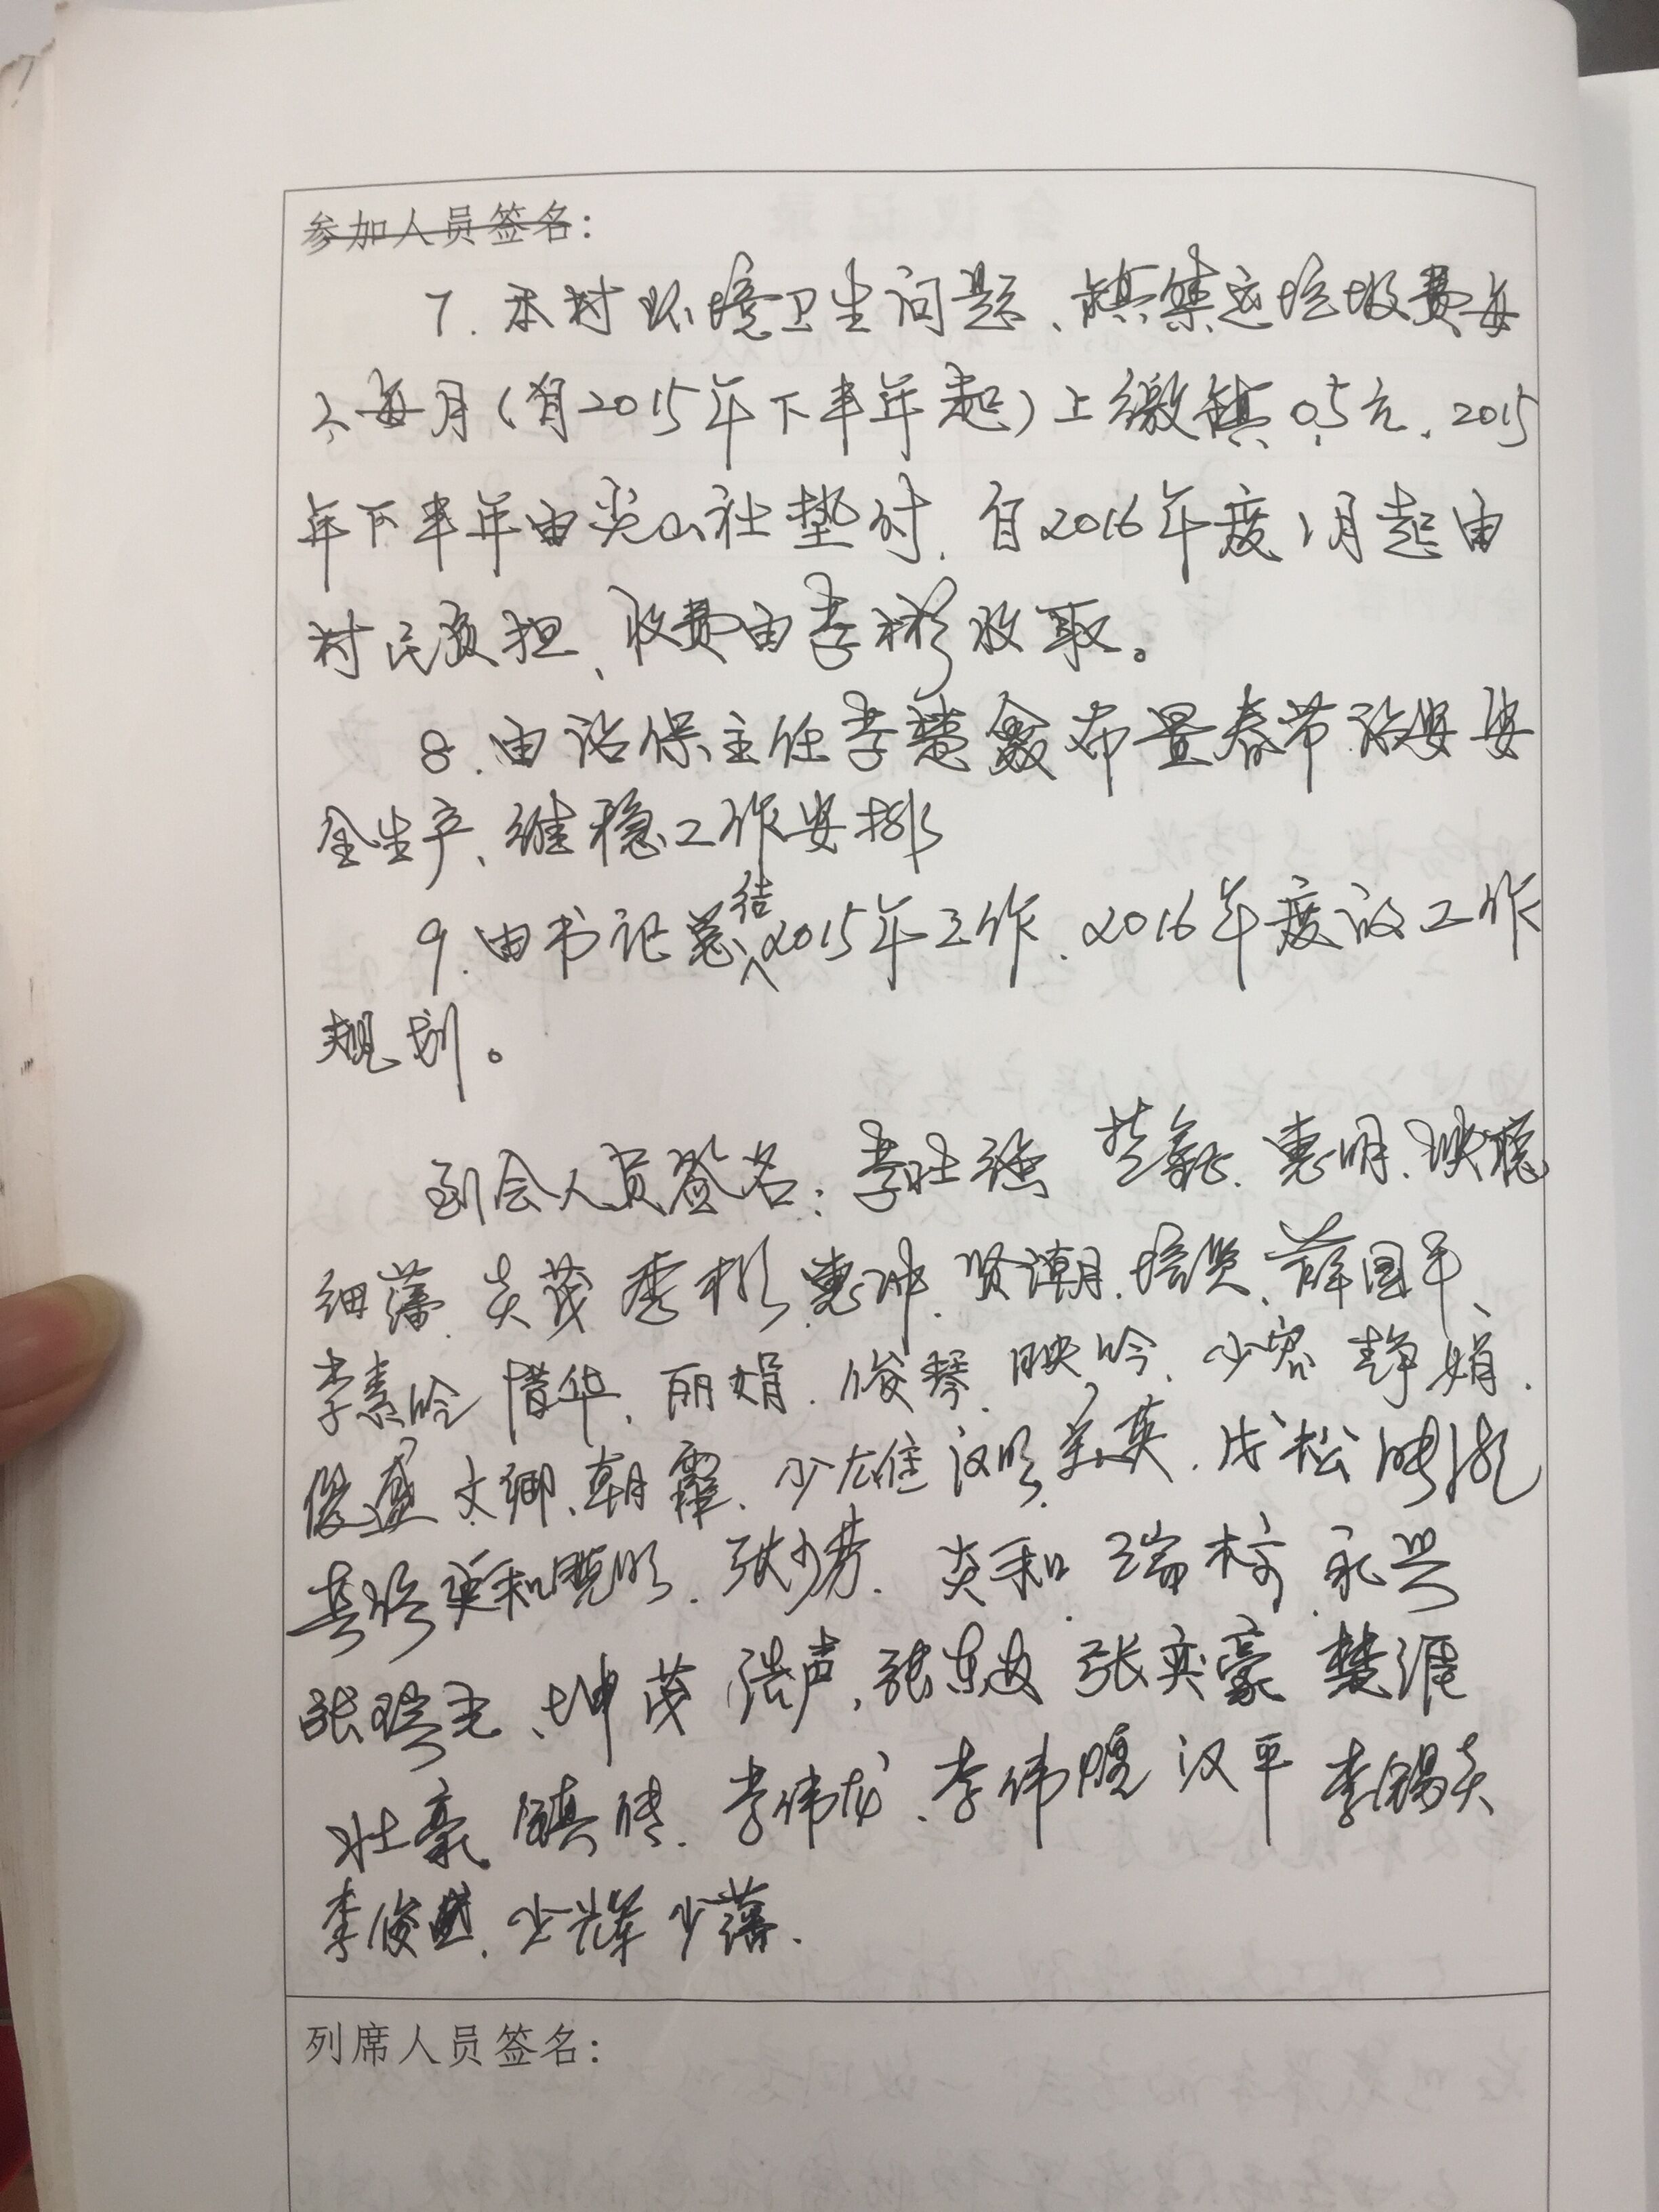 参加人员签名：
7.本村环境卫生问题、镇集运垃圾费每
人每月(自2015年下半年起)上缴镇0.5元.2015
年下半年由尖山社垫付.自2016年度1月起由
村民负担、收费由李彬收取。
8.由治保主任李楚鑫布置春节治安安
全生产、维稳工作安排
9.由书记总结2015年工作.2016年度的工作
规划。
到会人员签名:李壮强 惠明.映聪
细藩.炎茂 秀彬.惠冲.贤潮.培贤、薛国平、
李素吟 惜华.丽娟.俊琴.映吟.少容 静娟.
俊盛 文卿、朝霞.少雄 汉明.美英.茂松
晓明.张少芳.炎和.瑞 永兴
张瑞光、坤茂 浩声.张东 张奕豪 楚
壮豪 镇 .李伟龙.李伟 汉平 李锡炎
李俊 .少辉 少藩.
列席人员签名：